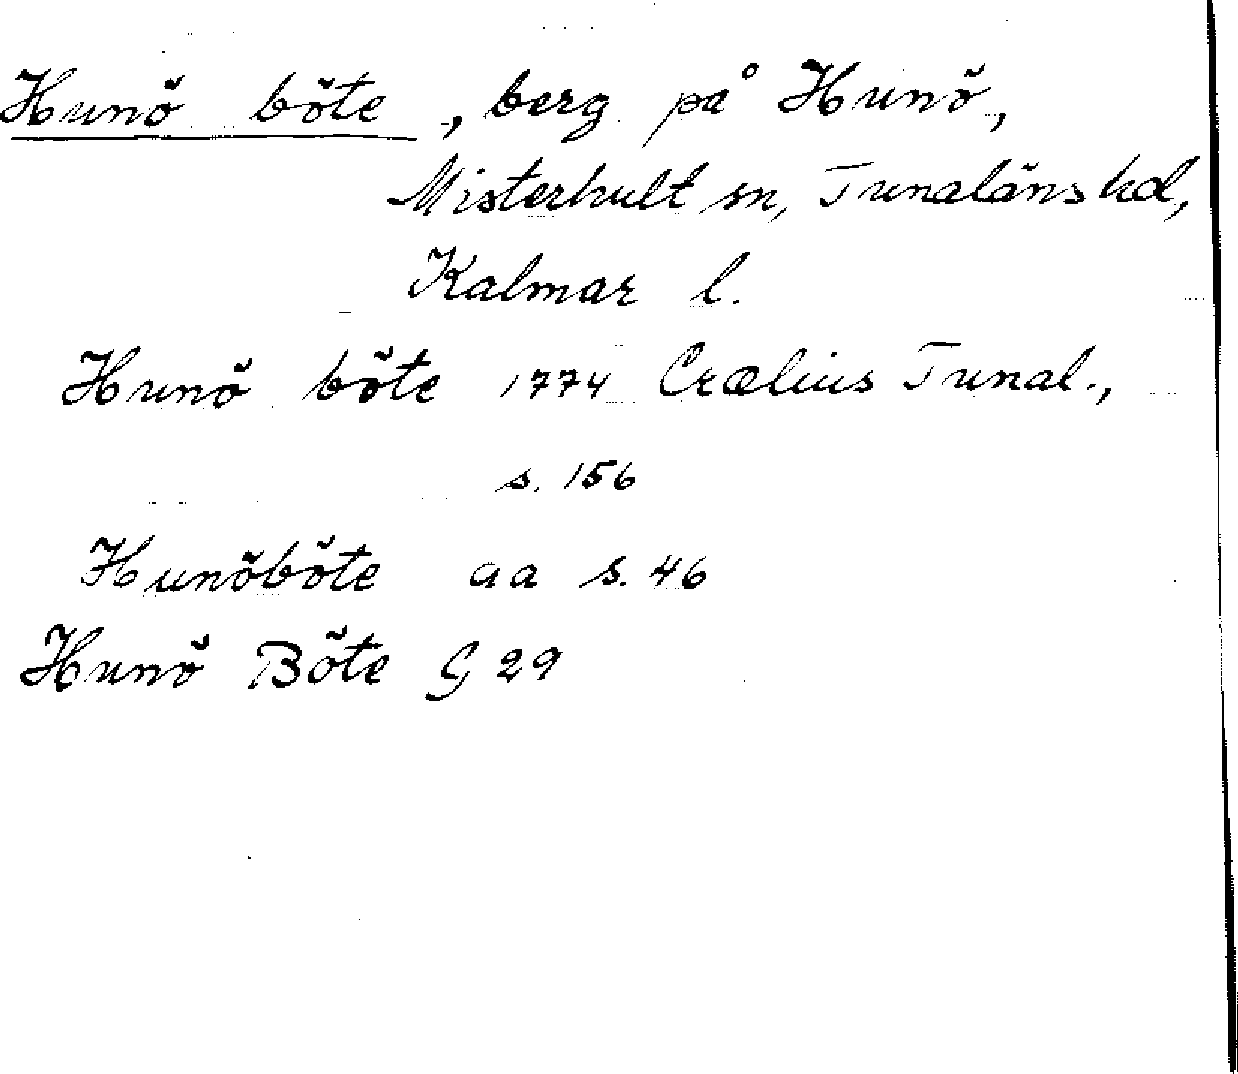 Hunö böte, berg på Hunö,
Misterhult sn, Tunaläns hd,
Kalmar l.
Hunö böte 1774 Crælius Tunal.,
s. 156
Hunöböte aa s. 46
Hunö Böte G 29